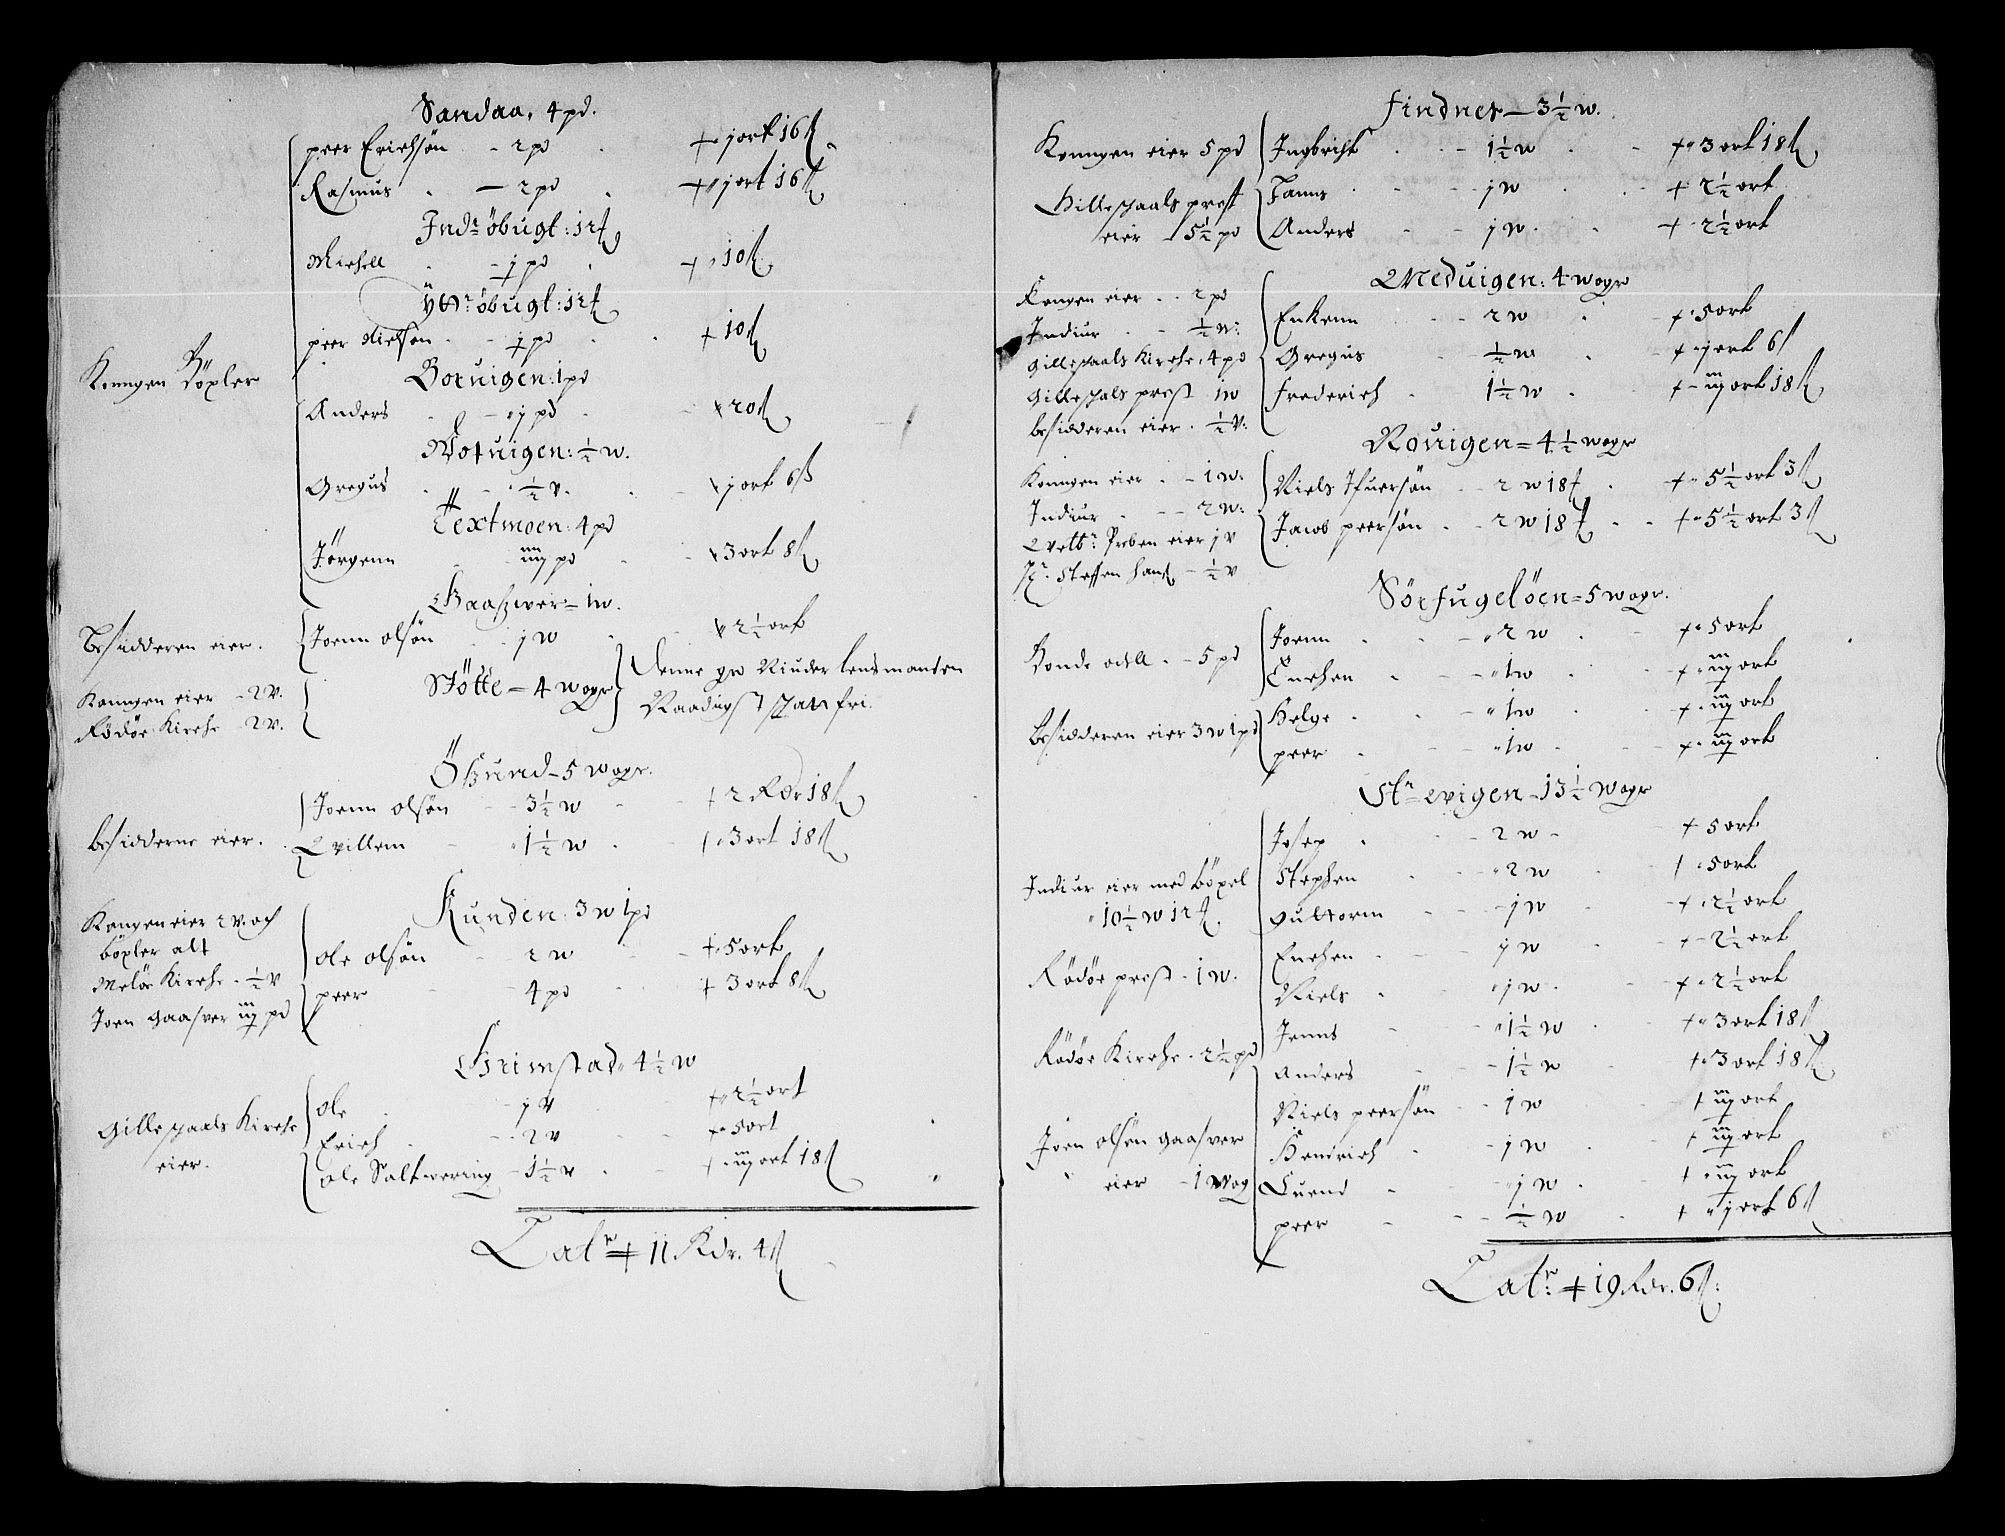 Sandaa, 4 pd.
peer Erichsøn - 2 pd + j ort 16 ß
Rasmus - 2 pd + j ort 16 ß
Indr öbugt: 12 ß
Michell - j pd + 10 ß
Ystr öbugt: 12 ß
peer Nielsen - j pd + 10 ß
Konngen Böxler
Boruigen: 1 pd
Anders - j pd 20 ß
uigen: ½ w.
Gregus - ½ v. j ort 6 ß
Textmoen: 4 pd
Jørgenn - iiij pd 3 ort 8 ß
Gaaswer - 1 w.
Besidderen eier. Joenn olsøn - j w 2½ ort
Konngen eier - 2 v.
Rødøe Kirche - 2 v.
Støtte - 4 wogr
Denne gr Niuder lensmanden
Naadigst schatt fri.
Öhund - 5 wogr.
Besidderne eier.
Joenn olsøn - 3½ w + 2 Rdr 18 ß
Qvillem - 1½ w 3 ort 18 ß
Kunden: 3 w 1 pd
Kongen eier 2 v. och
böxler alt
Meløe Kirche - ½ v
Joen Gaasver iiij pd
ole olsøn - 2 w + 5 ort
peer - 4 pd + 3 ort 8 ß
Grimstad 4½ w
Gilleschaals Kirche
eier.
ole j v + 2½ ort
Erich - 2 v + 5 ort
ole Saltwering - 1½ v iiij ort 18 ß
Latr + 11 Rdr. 4 ß
Findnes - 3½ w.
Konngen eier 5 pd
Gilleschaals prest
eier - 5½ pd
Ingbricht - 1½ w + 3 ort 18 ß
Hanns - j w + 2½ ort
Anders - j w + 2½ ort
Meduigen: 4 wogr
Kongen eier - 2 pd
Indiur - ½ w:
Gilleschaals Kirche, 4 pd
Gilleschals prest 1 w
besidderen eier - ½ v:
Enkenn - 2 w + 5 ort
Gregus - ½ w + j ort 6 ß
Frederich - 1½ w + iij ort 18 ß
Nouigen = 4½ wogr
Konngen eier - 1 w:
Indiur - 2 w:
Preben eier j v
Hr. Steffen Hans - ½ v
Niels Ifuersøn - 2 w 18 + 5½ ort 3 ß
Jacob peersøn - 2 w 18 + 5½ ort 3 ß
Sörfugelöen = 5 wogr.
Bonde odell - 5 pd
Besidderen eier 3 w 1 pd
Joenn - 2 w + 5 ort
Enchen - 1 w + iij ort
Helge - 1 w + iij ort
peer - 1 w + iij ort
Str evigen - 13½ wogr
Indiur eier med böxel
10½ w 12
Rødøe prest - 1 w.
Rødøe Kirche - 2½ pd
Joen olsøn gaasver
eier - 1 wog
Josep 2 w - + 5 ort
Stephen - 2 w 5 ort
Gultorm - j w + 2½ ort
Enchen - j w + 2½ ort
Niels - j w + 2½ ort
Jenns 1½ w + 3 ort 18 ß
Anders - 1½ w + 3 ort 18 ß
Niels peersøn - 1 w + iij ort
Hendrich - j w + iij ort
Suend - j w + iij ort
peer - ½ w + j ort 6 ß
Latr: + 19 Rdr. 6 ß: